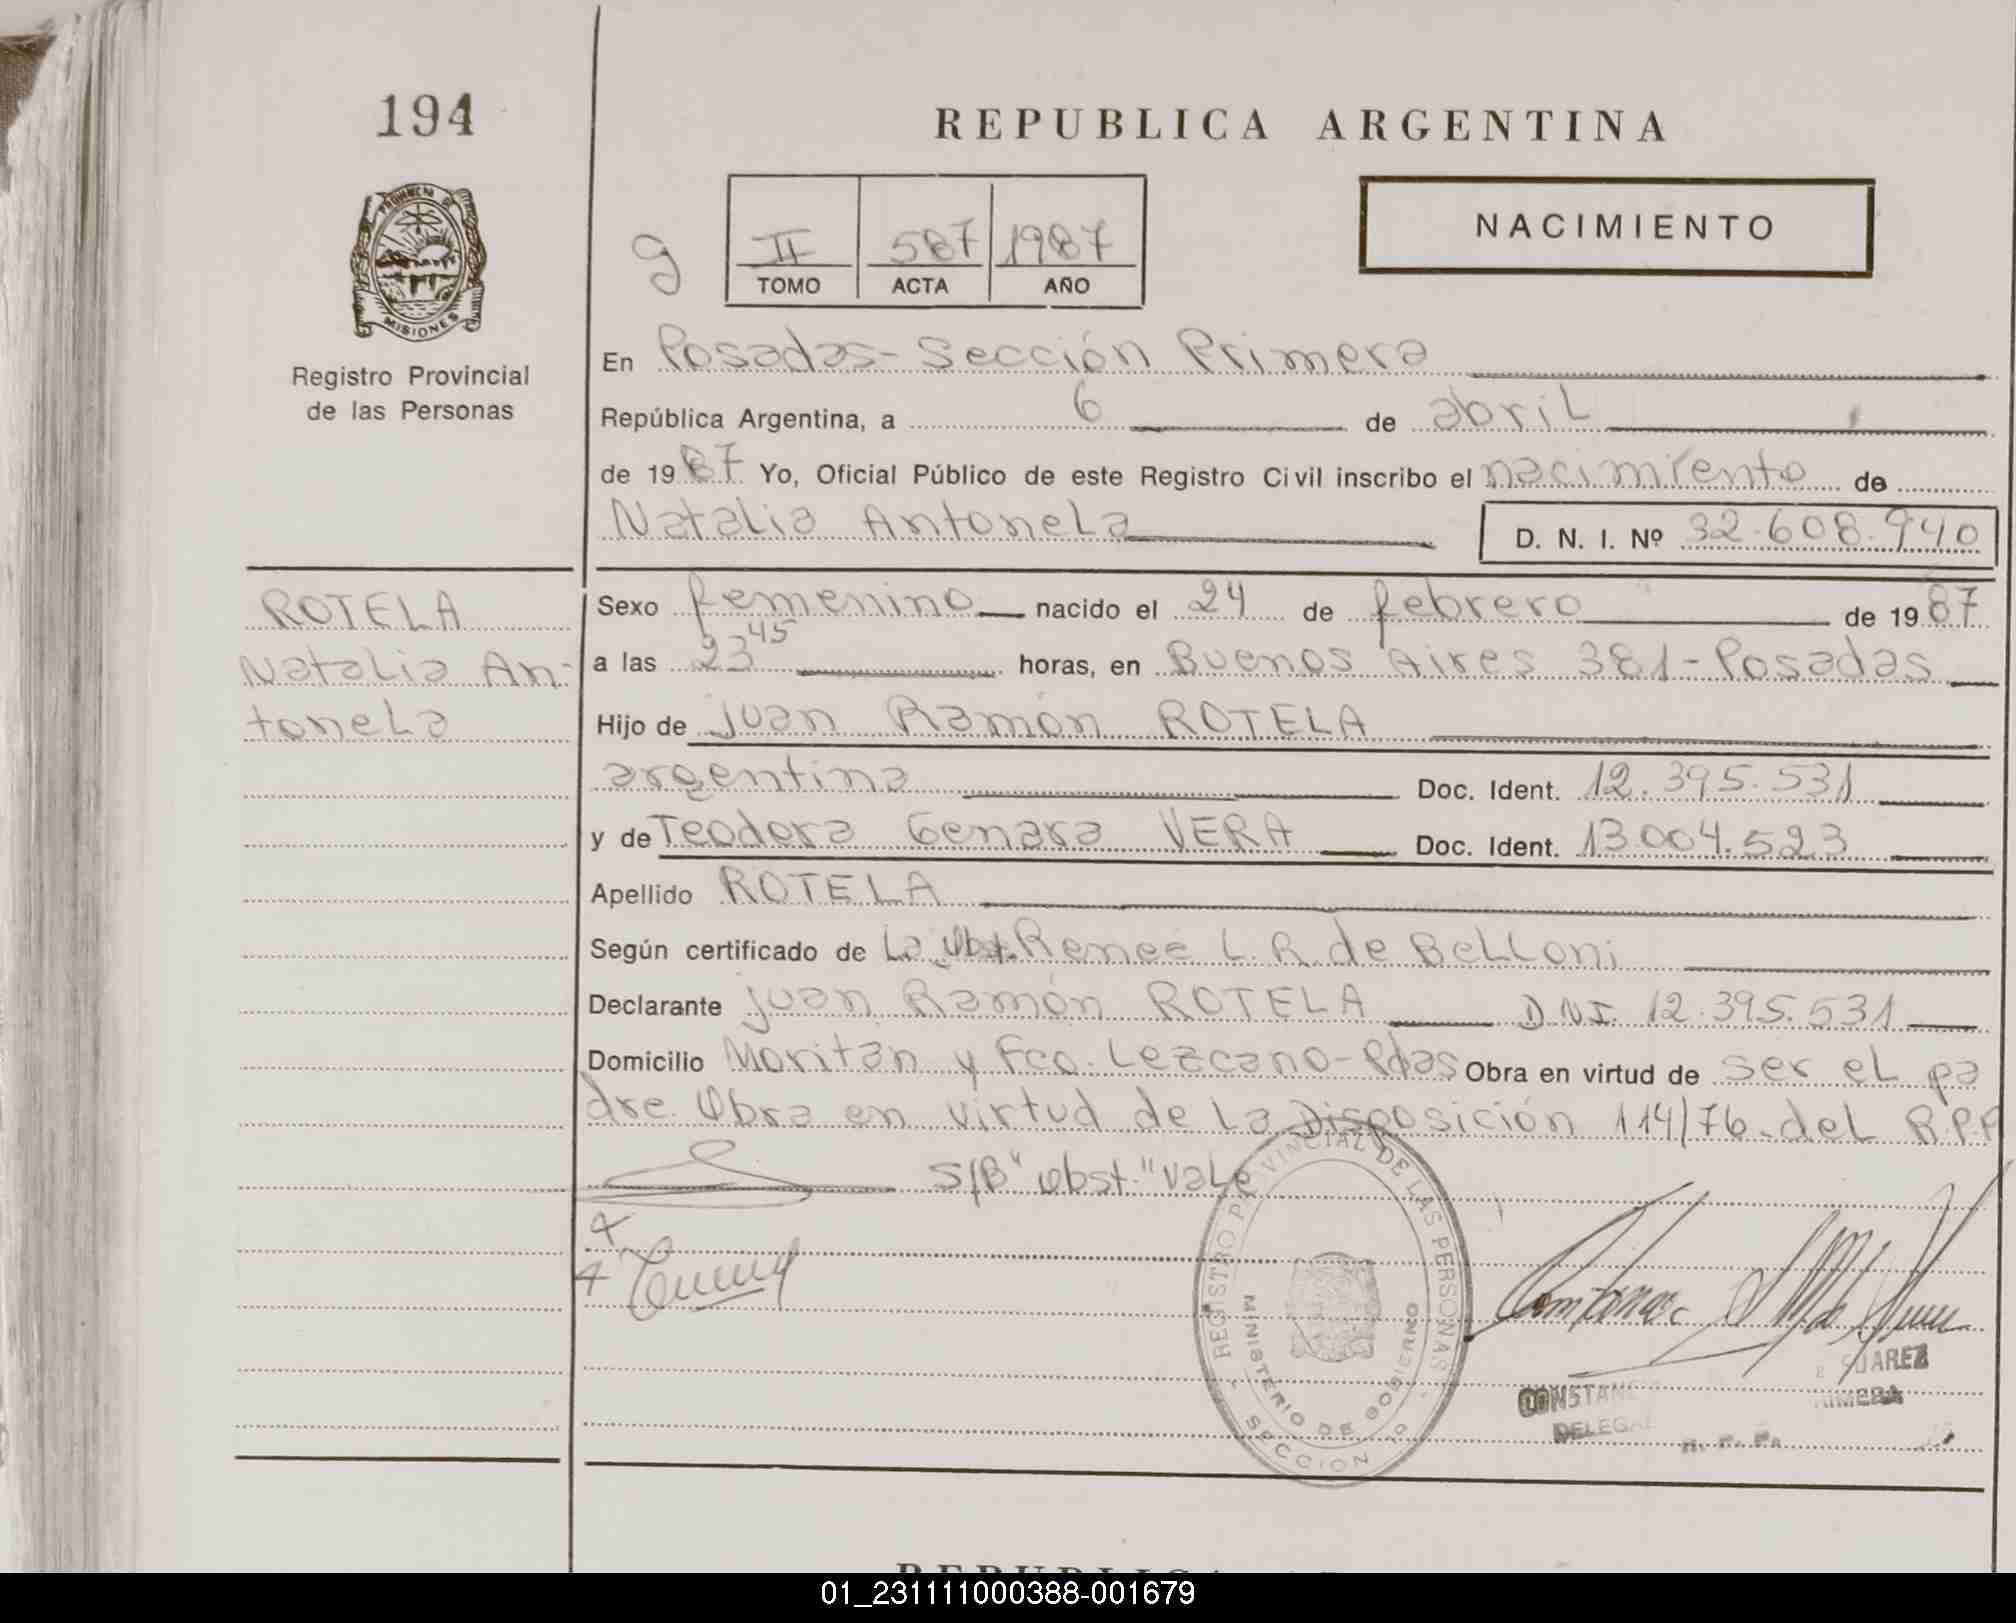 194
REPUBLICA ARGENTINA
PROVINCIA DE
MISIONES
Registro Provincial
de las Personas
NACIMIENTO
g
II 587 1987
TOMO ACTA AÑO
En Posadas-Sección Primera
República Argentina, a 6 de abril
de 1987 Yo, Oficial Público de este Registro Civil inscribo el nacimiento de
Natalia Antonela D. N. I. Nº 32.608.940
ROTELA
Natalia An-
tonela
Sexo femenino nacido el 24 de febrero de 1987
a las 23 45 horas, en Buenos Aires 381-Posadas
Hijo de Juan Ramón ROTELA
argentina Doc. Ident. 12.395.531
y de Teodora Genara VERA Doc. Ident. 13.004.523
Apellido ROTELA
Según certificado de La Obst. Renee L. R. de Belloni
Declarante Juan Ramón ROTELA D.N.I. 12.395.531
Domicilio Moritán y Fco. Lezcano-Pdas Obra en virtud de ser el pa
dre. Obra en virtud de la Disposición 114/76 del R.P.P
S/B "Obst." vale
REGISTRO PROVINCIAL DE LAS PERSONAS
MINISTERIO DE GOBIERNO
SECCION
SUAREZ
REPUBLICA
01_231111000388-001679